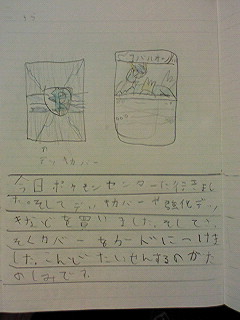 コバルオン
デッキカバー
今日ポケモンセンターに行きまし
た。そしてデッキカバーや強化デッ
キなどを買いました。そしてさっ
そくカバーをカードにつけま
した。こんどたいせんするのがた
のしみです。